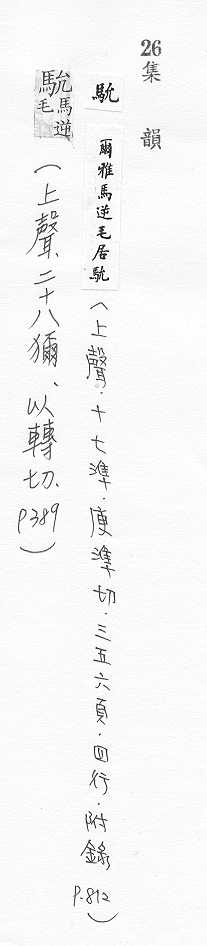 26
集韻
馻
爾雅馬逆毛居馻(上聲.十七準.庾準切.三五六頁.四行.附錄
P.812)
馬逆毛
(上聲、二十八獮、以轉切、
P389)